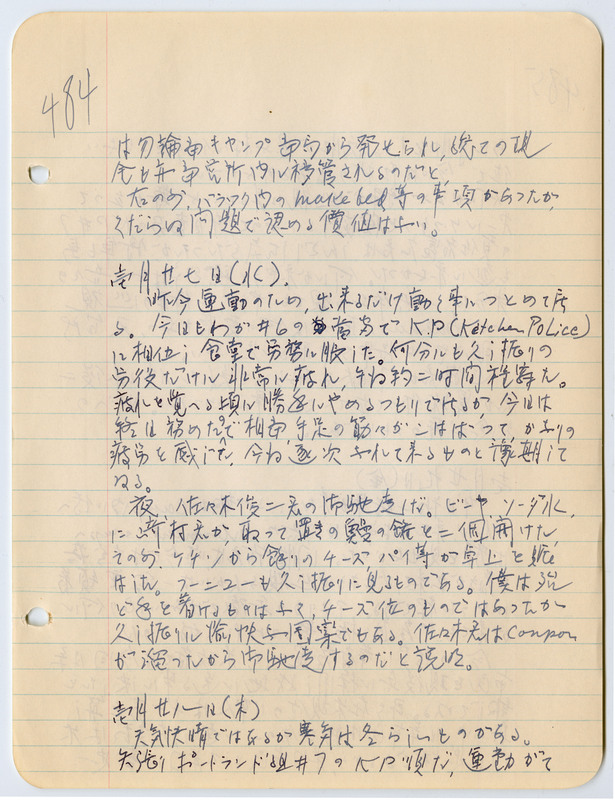 484
は勿論キャンプ当局から発せられ、総ての現
金も弁当売所内に移管されるのだと、
右の外、バラック内のmake bed等の事項があったが、
くだらぬ問題で認める價値はない。
壱月廿七日(水)、
昨今運動のため、出来るだけ動く事につとめて居
る。今日もわが#6の當番でK.P(Ketchen Police)
に相伍し食堂で労務に服した。何分にも久し振りの
労役だけに非常に疲れ、午后約二時間程寝た。
疲れを覚へる頃に勝手にやめるつもりで居るが、今日は
終日努めたので相當手足の筋々がこはばって、かなりの
疲労を感じた、今后逐次なれて来るものと予期して
ゐる。
夜、佐々木俊二君の御馳走だ。ビーヤ、ソーダ水、
に﨑村君が取って置きの鰻の鑵を二個開けた、
その外、ケチンから余りのチーズ、パイ等が卓上を賑
はした。メニューも久し振りに見るものである。僕は殆
ど手を着けるものはなく、チーズ位のものではあったが
久し振りに愉快な団欒でもある。佐々木君はCoupon
が溜ったから御馳走するのだと説明。
壱月廿八日(木)
天気快晴ではあるが寒気は冬らしいものがある。
矢張りポートランド組#7のKP順だ、運動がて